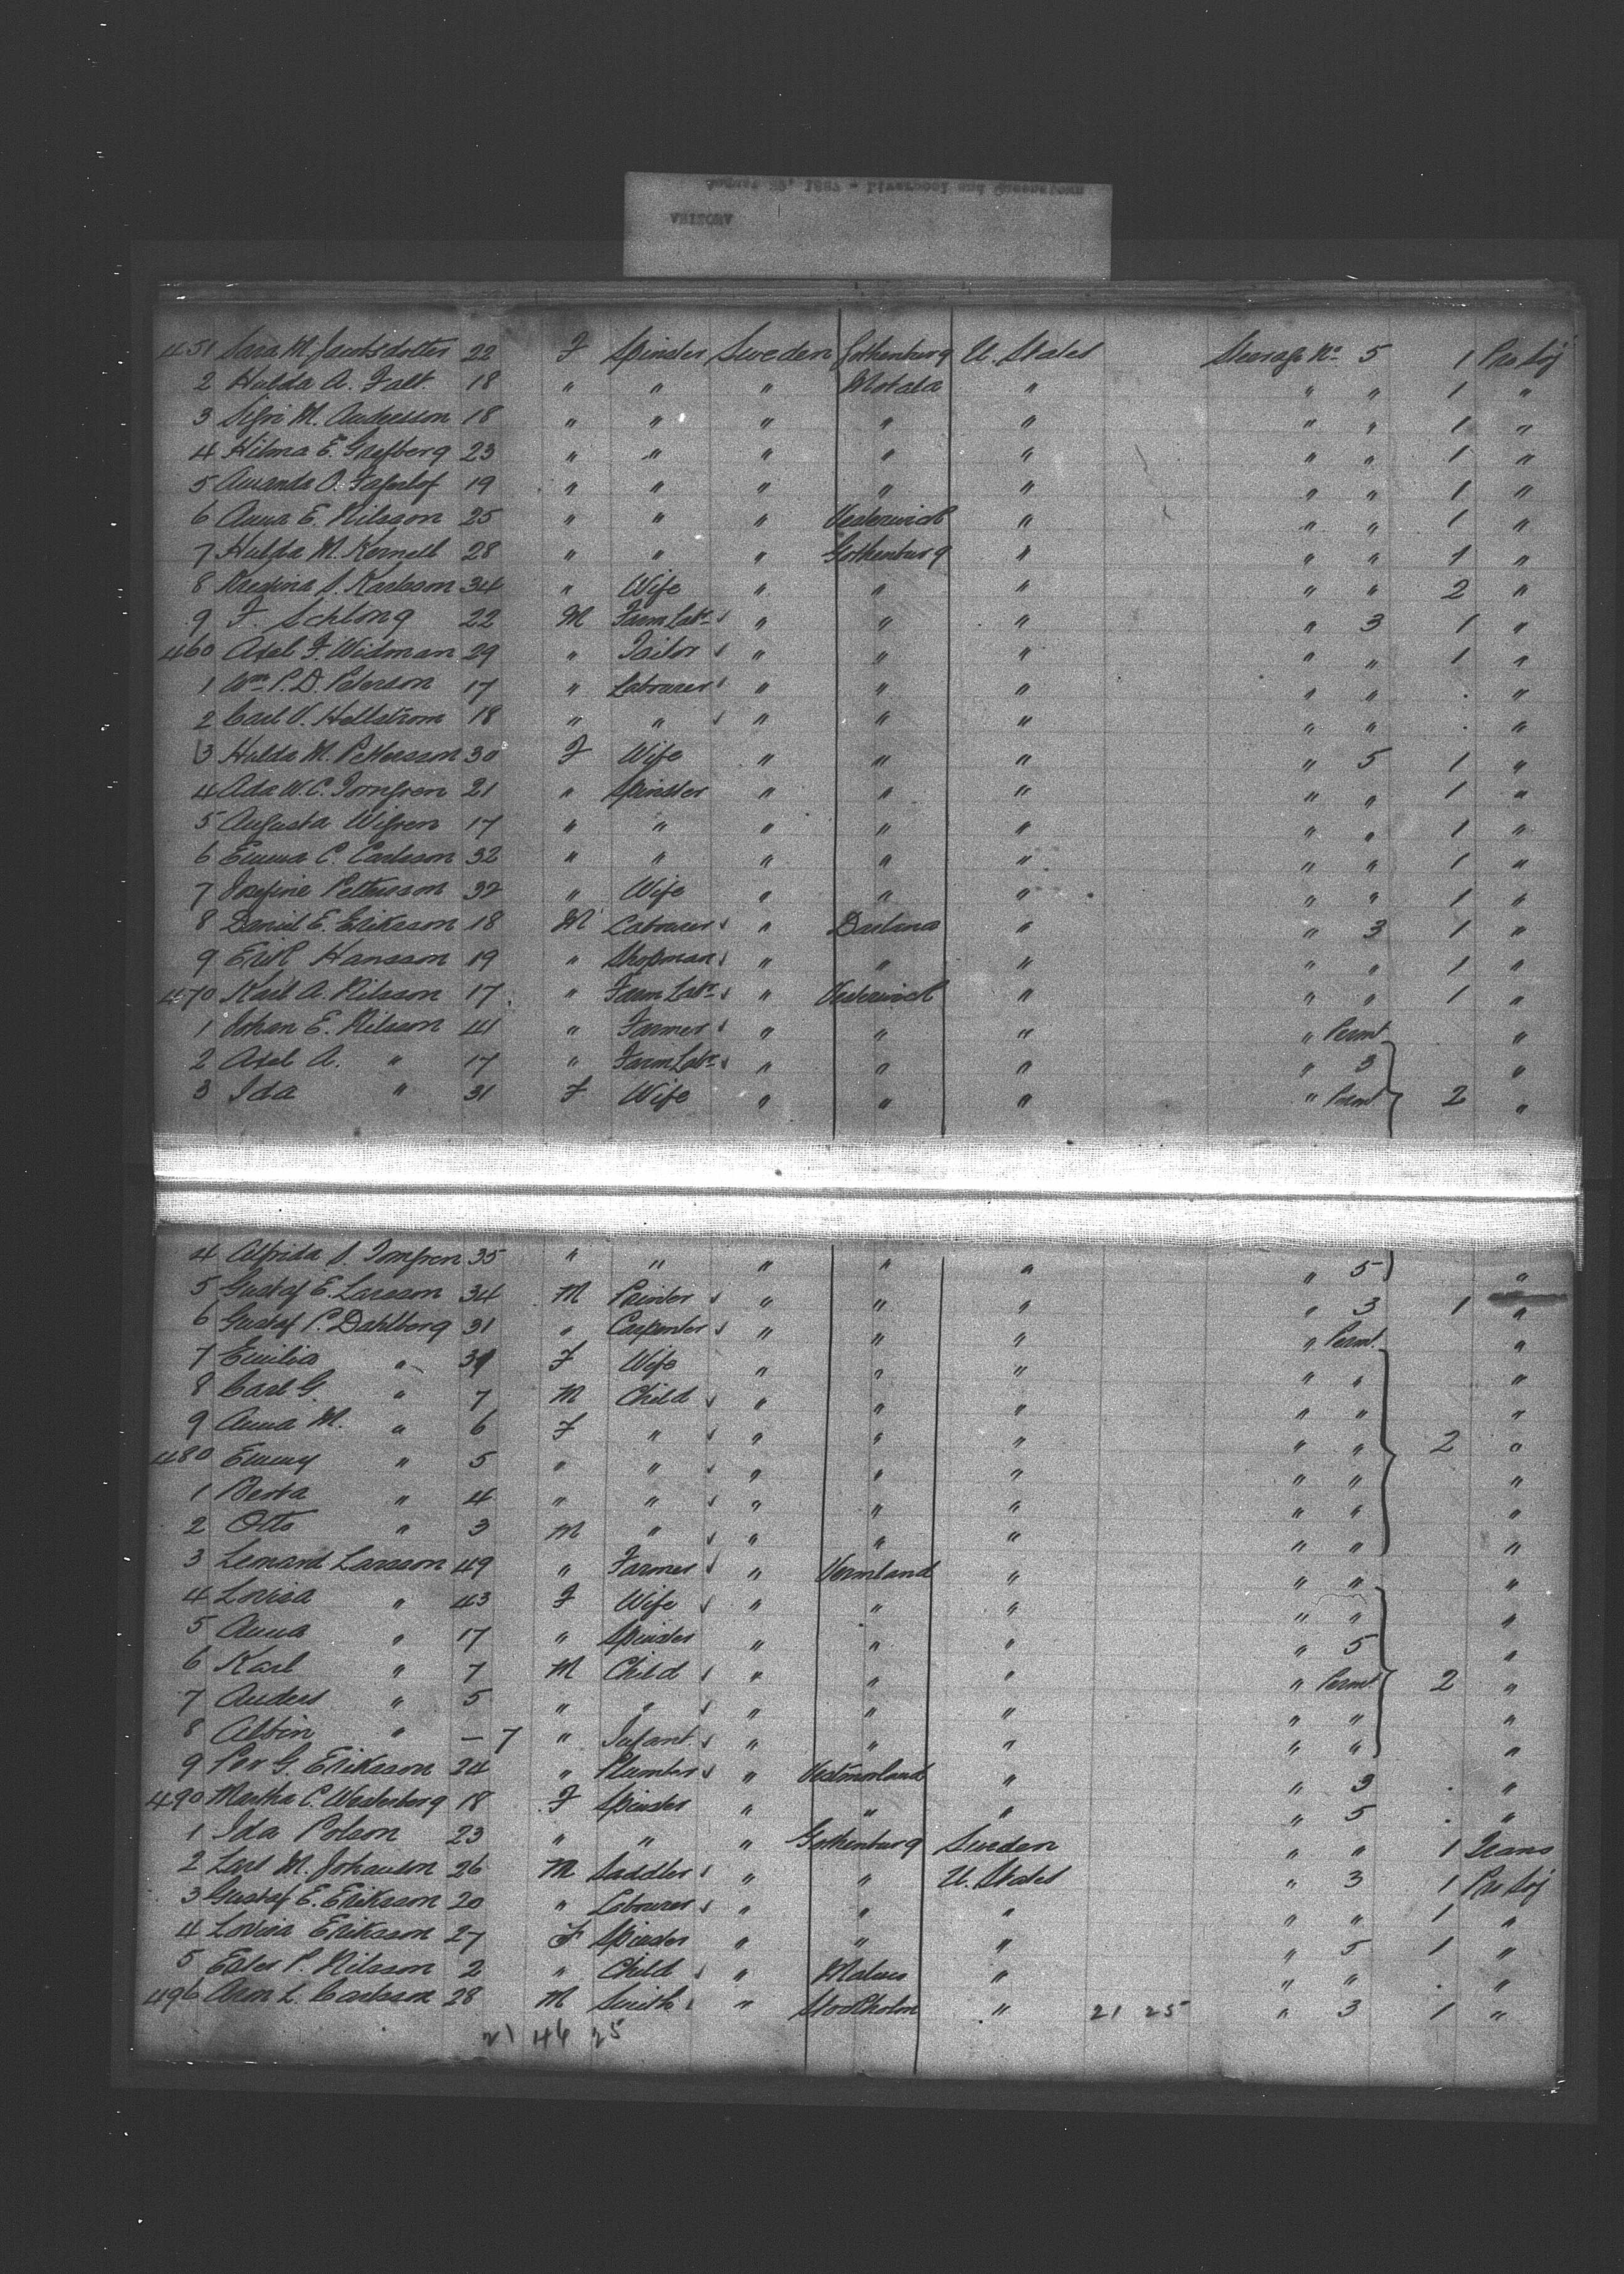 August 29, 1887 - Liverpool and Queenstown
ARIZONA
451 Sara M. Jacobsdotter 22 F Spinster Sweden Gothenburg U. States Steerage No 5 1 Pro Soj
2 Hulda A. Falt 18 " " " Motala " " " 1 "
3 Sigri M. Andersson 18 " " " " " " " 1 "
4 Hilma E. Grefberg 23 " " " " " " " 1 "
5 Amanda O. 19 " " " " " " " 1 "
6 Anna E. Nilsson 25 " " " Vesterwick " " " 1 "
7 Hulda M. Kernell 28 " " " Gothenburg " " " 1 "
8 S. Karlsson 34 " Wife " " " " " 2 "
9 F. Schlong 22 M Farm Labr " " " " 3 1 "
460 Axel F. Widman 29 " Tailor " " " " " 1 "
1 Wm P. D. Peterson 17 " Labourer " " " " " . "
2 Carl V. Hellstrom 18 " " " " " " " . "
3 Hulda M. Petterson 30 F Wife " " " " 5 1 "
4 Ada W. C. Torngren 21 " Spinster " " " " " 1 "
5 Augusta Wigren 17 " " " " " " " 1 "
6 Emma C. Carlsson 32 " " " " " " " 1 "
7 Josefine Pettersson 32 " Wife " " " " " 1 "
8 Daniel E. Eriksson 18 M Labourer " Darlana " " 3 1 "
9 Erik Hansson 19 " Shopman " " " " " 1 "
470 Karl A. Nilsson 17 " Farm Labr " Vesterwick " " " 1 "
1 Johan E. Nilsson 41 " Farmer " " " " Permt "
2 Axel A. " 17 " Farm Labr " " " " 3 "
3 Ida " 31 F Wife " " " " Permt 2 "
4 Alfrida S. Torngren 35 " " " " " " 5 "
5 Gustaf E. Larsson 34 M Painter " " " " 3 1 "
6 Gustaf P. Dahlborg 31 " Carpenter " " " " Permt "
7 Emilia " 31 F Wife " " " " " "
8 Carl G. " 7 M Child " " " " " "
9 Anna M. " 6 F " " " " " " 2 "
480 Emmy " 5 " " " " " " " "
1 Berta " 4 " " " " " " " "
2 Otto " 3 M " " " " " " "
3 Lennard Larsson 49 " Farmer " Vermland " " " "
4 Lovisa " 43 F Wife " " " " " "
5 Anna " 17 " Spinster " " " " 5 "
6 Karl " 7 M Child " " " " Permt 2 "
7 Anders " 5 " " " " " " " "
8 Albin " - 7 " Infant " " " " " "
9 Per G. Eriksson 24 " Plumber " Vestmorland " " 3 . "
490 Martha C. Westerberg 18 F Spinster " " " " 5 . "
1 Ida Polson 23 " " " Gothenburg Sweden " " 1 Trans
2 Lars M. Johanson 26 M Saddler " " U. States " 3 1 Pro Soj
3 Gustaf E. Eriksson 20 " Labourer " " " " " 1 "
4 Lovisa Eriksson 27 F Spinster " " " " 5 1 "
5 Ester P. Nilsson 2 " Child " Malmo " " " . "
496 Aron L. Carlsson 28 M Smith " Stockholm " 21 25 " 3 1 "
21 46 25